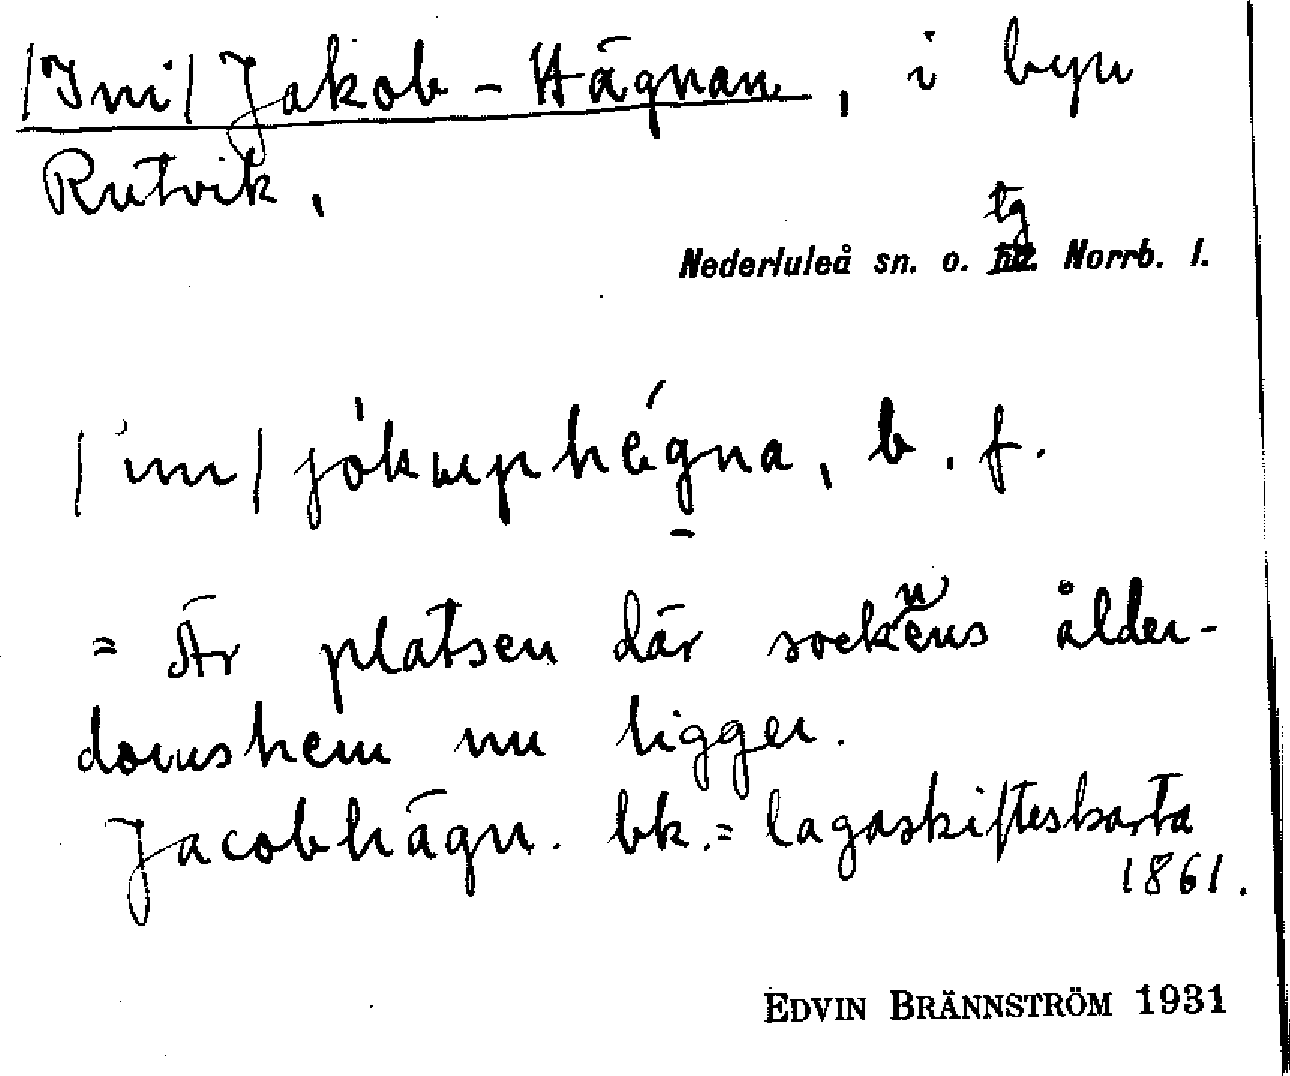 /Ini/ Jakob-Hägnan, i byn
Rutvik,
tg
Nederluleå sn. o. hd. Norrb. l.
/ini/ jókuphégna, b. f.
= Är platsen där socknens ålder-
domshem nu ligger.
Jacobhägn. bk. = lagaskifteskarta
1861.
EDVIN BRÄNNSTRÖM 1931